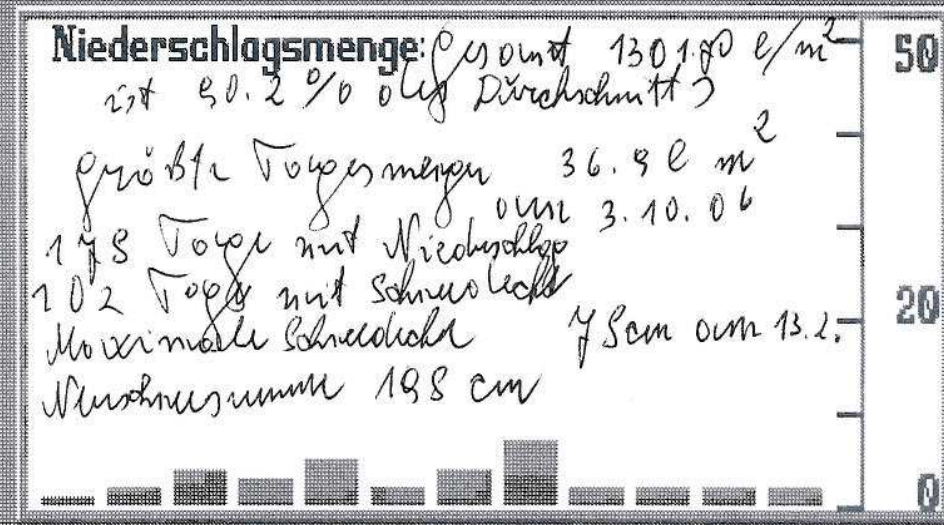 Niederschlagsmenge: Gesamt 1301.70 l/m² 50
ist 90.2 % des Durchschnitts
größte Tagesmenge 36.9 l m²
am 3.10.06
Tage mit Niederschlag
102 Tage mit Schneedecke 20
Maximale Schneedecke cm am 13.2.
Neuschneesumme cm
0